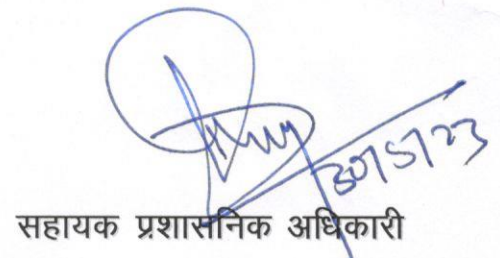 30/5/23
सहायक प्रशासनिक अधिकारी